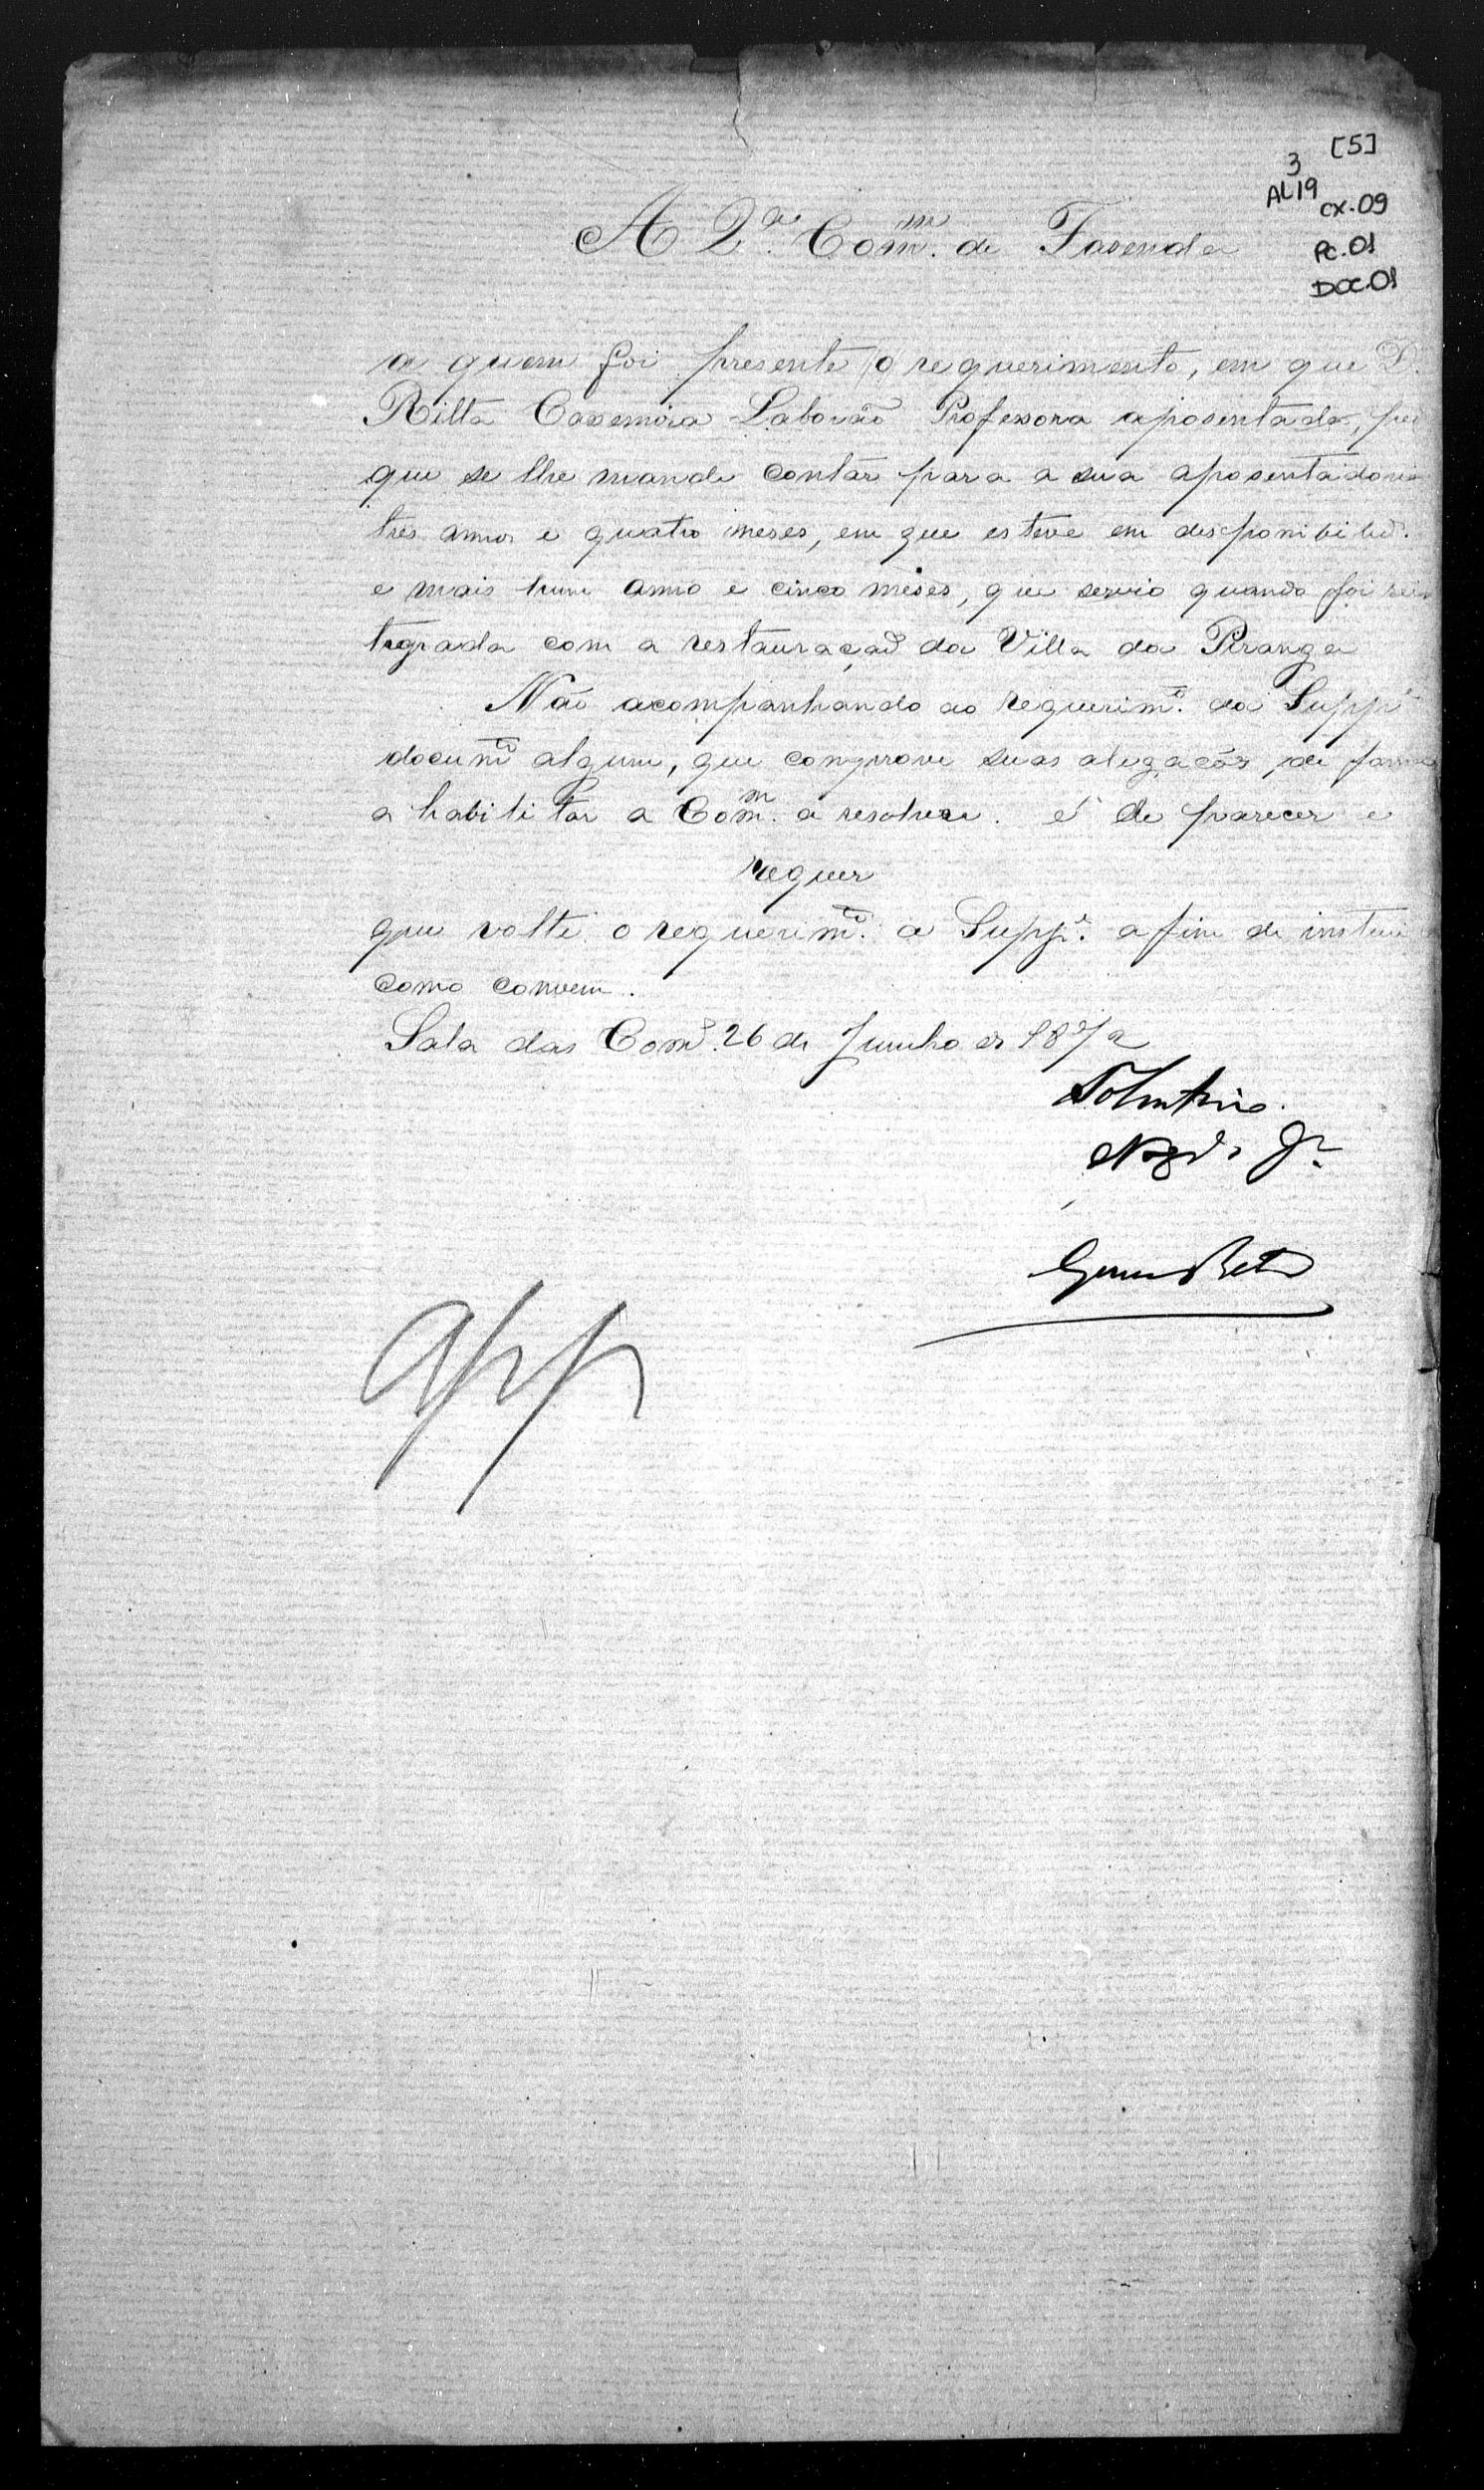 [5]
3
AL19
cx.09
PC.01
DOC.01
A 2ª Comm. de Fasenda
a quem foi presente o requerimento, em que D.
Ritta Casemira Professora aposentada, pe
que se lhe mande contar para a sua aposentadoria
tres annos e quatro meses, em que esteve em desponibilid.
e mais hum anno e cinco meses, que servio quando foi rein
tegrada com a restauração da Villa da Piranga
Não acompanhando ao requerim.to da Supp.e
docum.to algum, que comprove suas alegações, de forma
a habilitar a Comm. a resolver. é de parecer e
requer
que volte o requerim.to a Supp.e a fim de instrui
como convem.
Sala das Com.s 26 de Junho de 1872
Tolentino.
Jr.
App